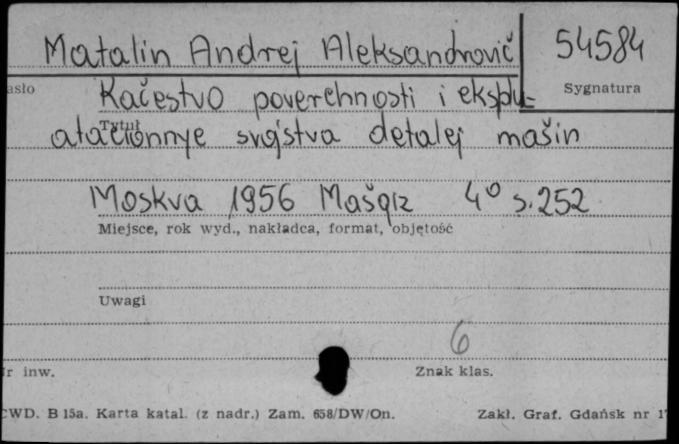 Matalin Andrej Aleksandrovič 54584
asło Sygnatura
Kačestvo poverchnosti i eksplu=
Tytuł
atacionnye svojstva detalej mašin
Moskva 1956 Mašgiz 4° s. 252
Miejsce, rok wyd., nakładca, format, objętość
Uwagi
6
r inw. Znak klas.
CWD. B 15a. Karta katal. (z nadr.) Zam. 658/DW/On. Zakł. Graf. Gdańsk nr 1